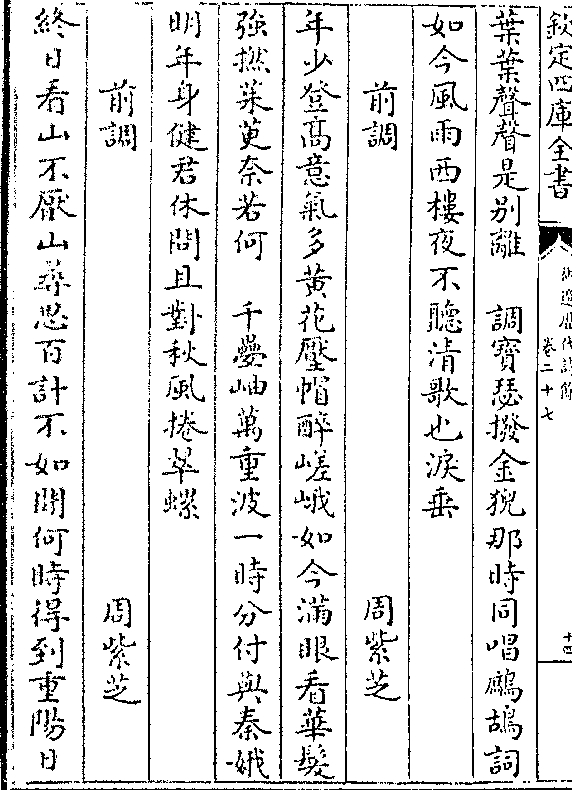 欽定四庫全書
御選歷代詩餘
卷二十七
十四
葉葉聲聲是别離　調寶瑟撥金猊那時同唱鷓鴣詞
如今風雨西樓夜不聽清歌也淚垂
前調　周紫芝
年少登髙意氣多黄花壓帽醉嵯峨如今滿眼看華髮
強撚茱萸奈若何　千疊岫萬重波一時分付與秦娥
明年身健君休問且對秋風捲翠螺
前調　周紫芝
終日看山不厭山尋思百計不如閒何時得到重陽日